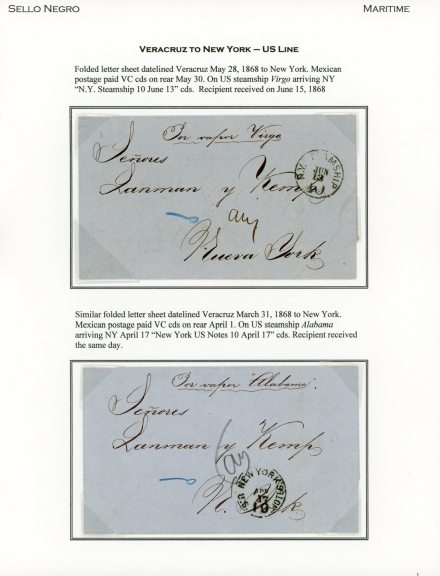 SELLO NEGRO
MARITIME
VERACRUZ TO NEW YORK – US LINE
Folded letter sheet datelined Veracruz May 28, 1868 to New York. Mexican
postage paid VC cds on rear May 30. On US steamship Virgo arriving NY
“N.Y. Steamship 10 June 13” cds. Recipient received on June 15, 1868
Por vapor Virgo
Señores
Lanman y Kemp
N.Y. STEAMSHIP
JUN
13
10
Nueva York
Similar folded letter sheet datelined Veracruz March 31, 1868 to New York.
Mexican postage paid VC cds on rear April 1. On US steamship Alabama
arriving NY April 17 “New York US Notes 10 April 17” cds. Recipient received
the same day.
Por vapor "Alabama".
Señores
Lanman y Kemp
NEW YORK
U.S. NOTES
APR
17
10
N. York